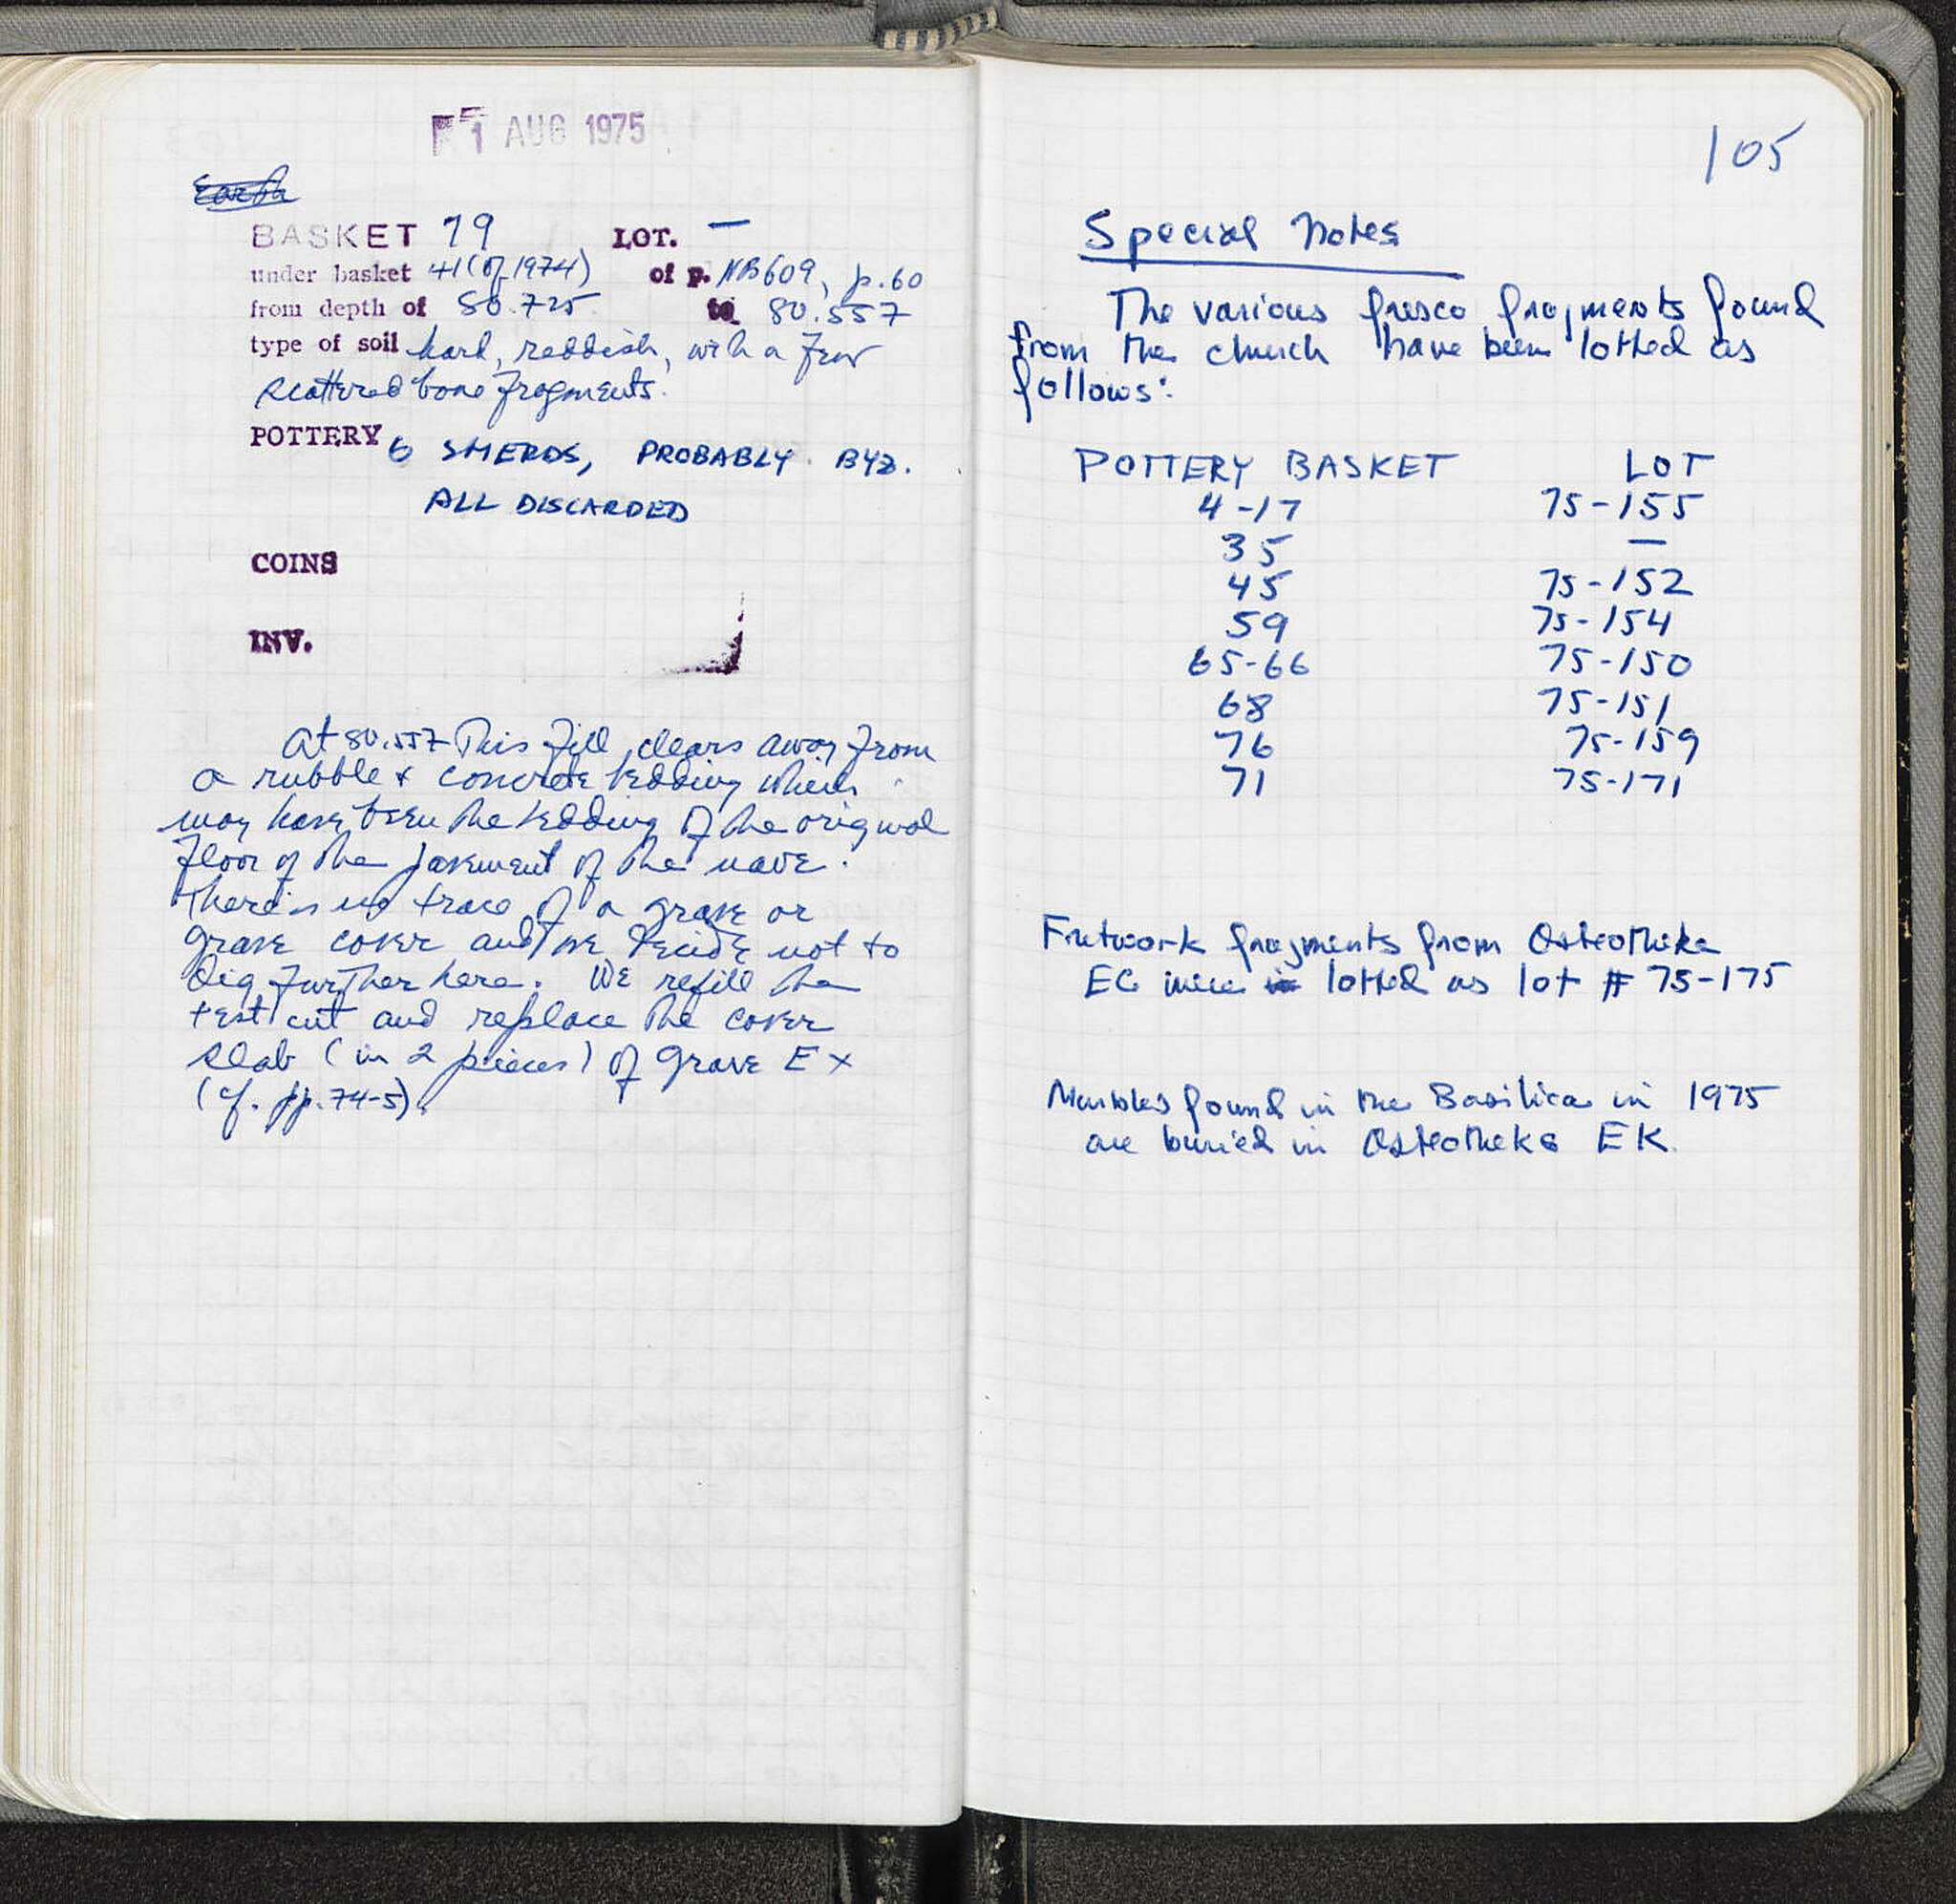 1 AUG 1975
Earth
BASKET 79 LOT. —
under basket 41 (of 1974) of p. NB609, p.60
from depth of 80.725 to 80.557
type of soil hard, reddish, with a few
scattered bone fragments.
POTTERY 6 SHERDS, PROBABLY BYZ.
ALL DISCARDED
COINS
INV.
At 80.557 This fill clears away from
a rubble & concrete bedding which
may have been the bedding of the original
floor of the pavement of the nave.
There is no trace of a grave or
grave cover and we decide not to
dig further here. We refill the
test cut and replace the cover
slab (in 2 pieces) of grave EX
(cf. pp. 74-5).
105
Special Notes
The various fresco fragments found
from the church have been lotted as
follows:
POTTERY BASKET LOT
4-17 75-155
35 —
45 75-152
59 75-154
65-66 75-150
68 75-151
76 75-159
71 75-171
Fretwork fragments from Osteotheke
EG were lotted as lot # 75-175
Marbles found in the Basilica in 1975
are buried in Osteotheke EK.